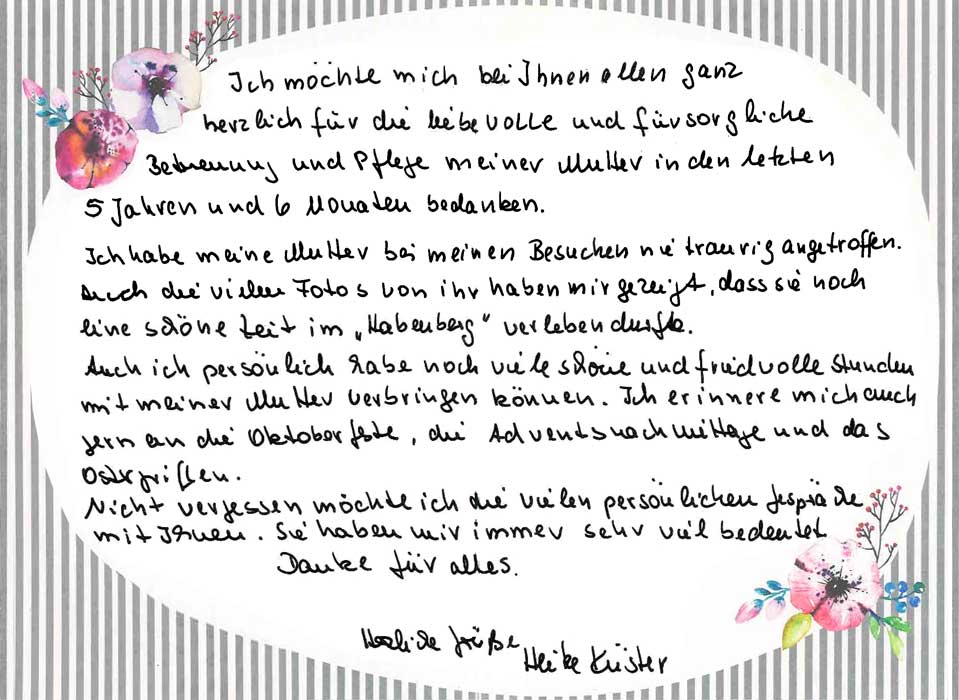 Ich möchte mich bei Ihnen allen ganz
herzlich für die liebevolle und fürsorgliche
Betreuung und Pflege meiner Mutter in den letzten
5 Jahren und 6 Monaten bedanken.
Ich habe meine Mutter bei meinen Besuchen nie traurig angetroffen.
Auch die vielen Fotos von ihr haben mir gezeigt, dass sie noch
eine schöne Zeit im „Habenberg" verleben durfte.
Auch ich persönlich habe noch viele schöne und friedvolle Stunden
mit meiner Mutter verbringen können. Ich erinnere mich auch
gern an die Oktoberfeste, die Adventsnachmittage und das
Ostergrillen.
Nicht vergessen möchte ich die vielen persönlichen Gespräche
mit Ihnen. Sie haben mir immer sehr viel bedeutet.
Danke für alles.
Herzliche Grüße
Heike Küster